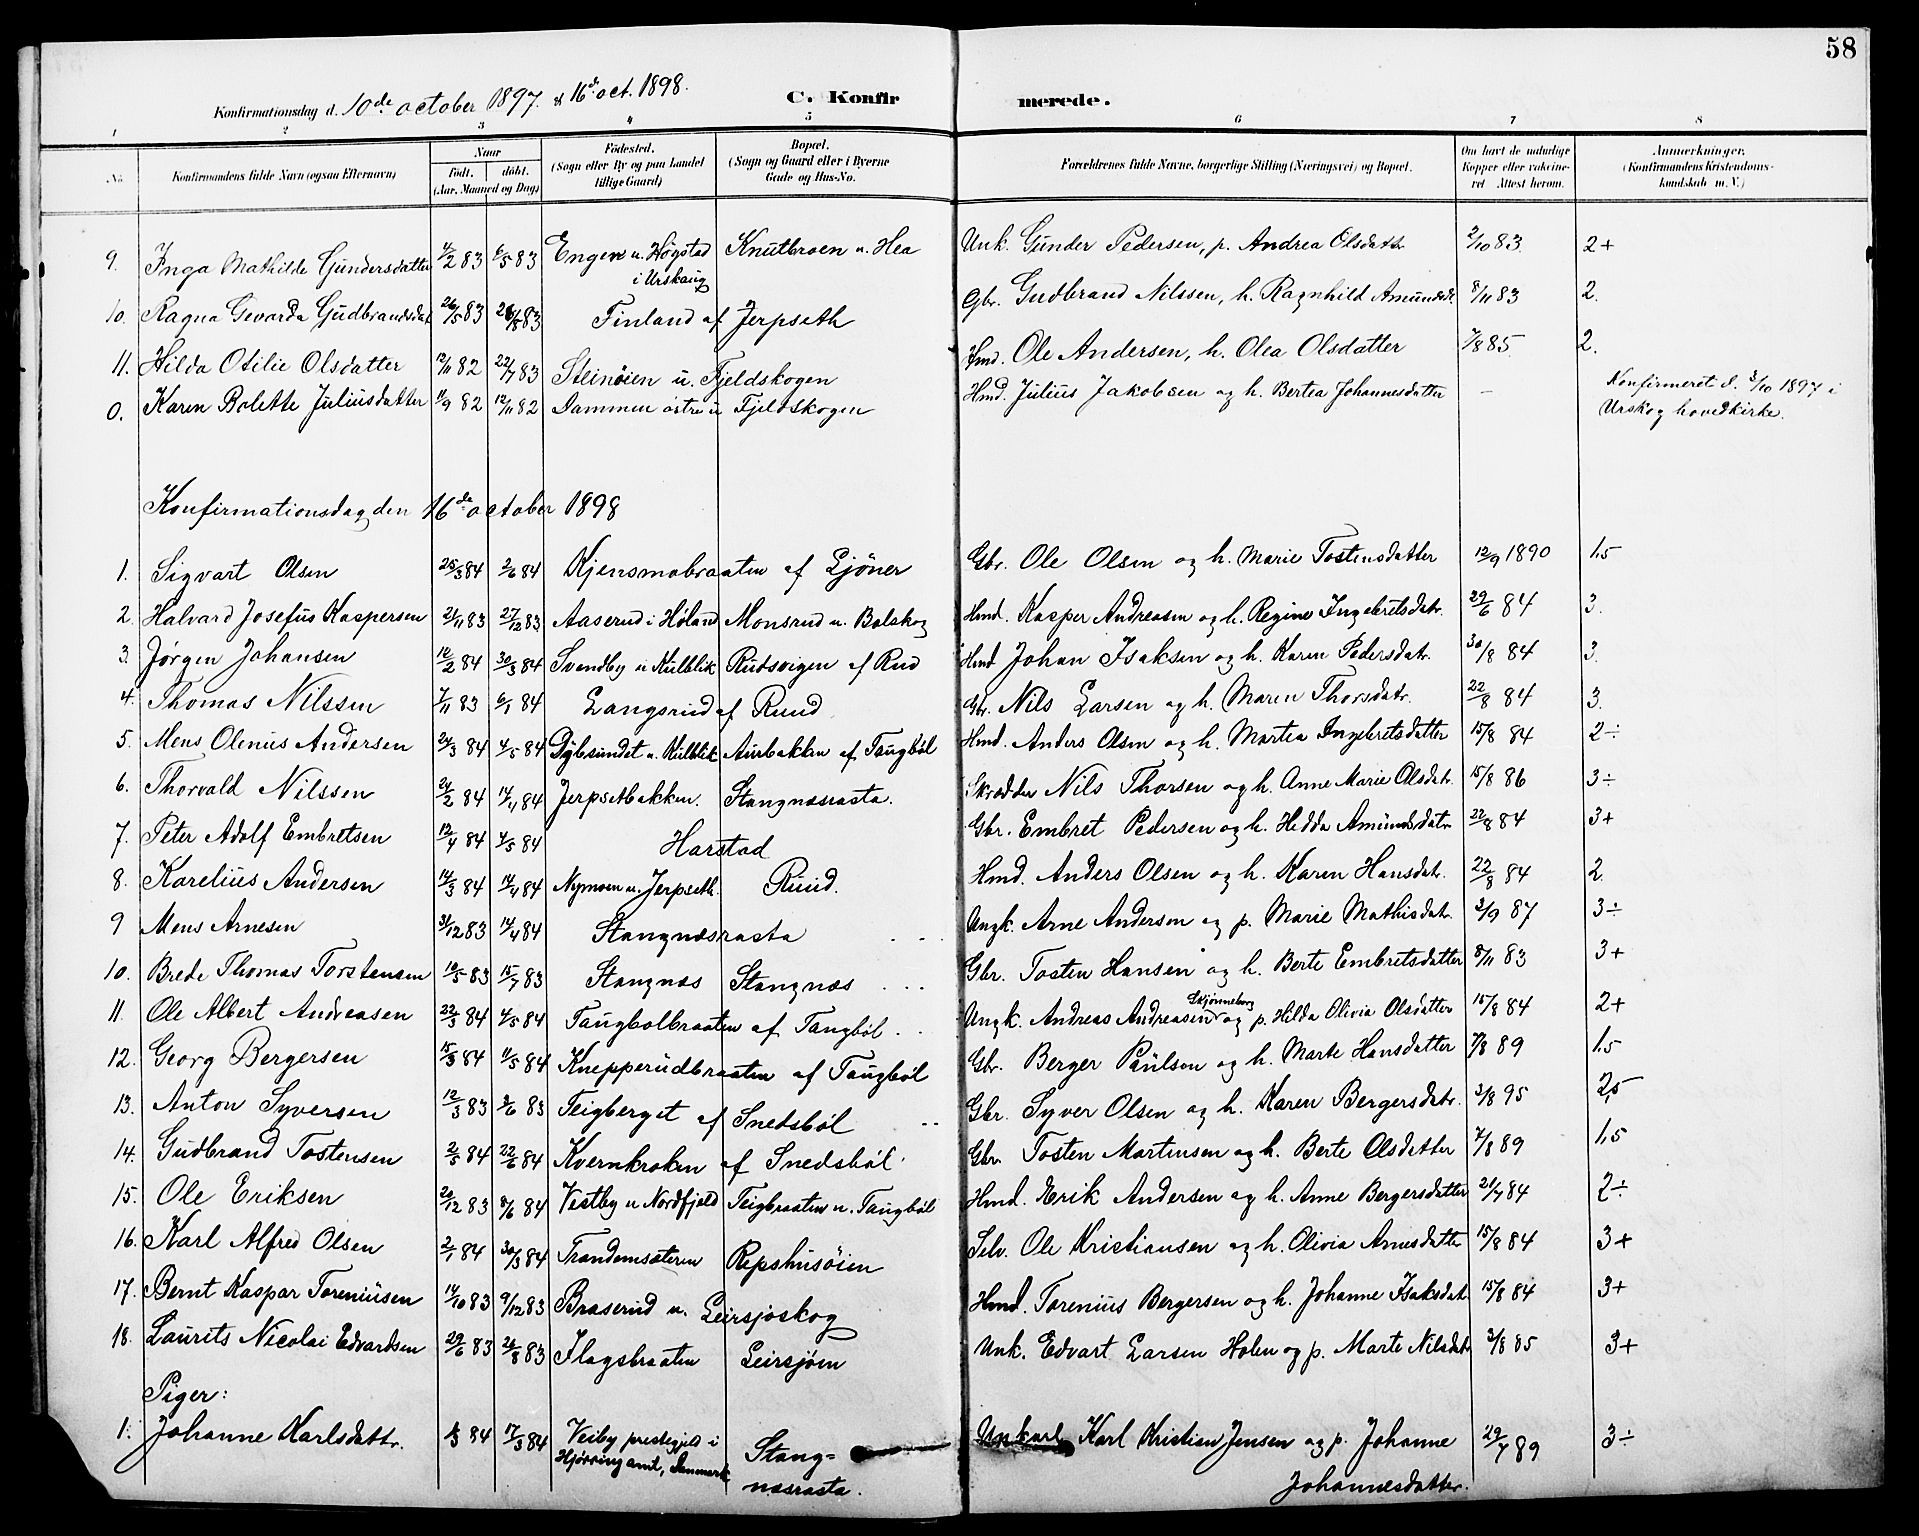 58
Konfirmationsdag d. 10de october 1897. & 16de oct. 1898. C. Konfirmerede.
1 2 3 4 5 6 7 8
No. Konfirmandens fulde Navn (ogsaa Efternavn) Naar født. døbt. (Aar. Maaned og Dag) Fødested. (Sogn eller By og paa Landet tillige Gaard) Bopæl. (Sogn og Gaard eller i Byerne Gade og Hus-No. Forældrenes fulde Navne, borgerlige Stilling (Næringsvei) og Bopæl. Om havt de naturlige Kopper eller vakcineret Attest herom. Anmerkninger. (Konfirmandens Kristendomskundskab m. V.)
9. Inga Mathilde Gundersdatter 4/2 83 6/5 83 Engen u. Høgstad i Urskaug Knutbroen u. Hea Unk. Gunder Pedersen, p. Andrea Olsdatr 2/10 83. 2+
10. Ragna Gevarda Gudbrandsdat 26/5 83 26/8 83 Finland af Jerpseth Gbr. Gudbrand Nilssen, h. Ragnhild Amundsdt. 8/11 83 2.
11. Hilda Otilie Olsdatter 12/11 82 22/7 83 Steinøien u. Fjeldskogen Hmd. Ole Andersen, h. Olea Olsdatter 7/8 85 2.
0. Karen Bolette Juliusdatter 11/9 82 12/11 82 Dammen østre u Fjeldskogen Hmd. Julius Jakobsen og h. Bertea Johannesdatter – Konfirmeret d. 3/10 1897 i Urskog hovedkirke.
Konfirmationsdag den 16de october 1898
1. Sigvart Olsen 25/3 84 2/6 84 Kjensmobraaten af Ljøner Gbr. Ole Olsen og h. Marie Tostensdatter 12/9 1890 1,5
2. Halvard Josefus Kaspersen 21/11 83 27/12 83 Aaserud i Høland Monsrud u. Bolskog Hmd. Kasper Andreasen og h. Regine Ingebretsdatr. 29/6 84 3.
3. Jørgen Johansen 10/2 84 30/3 84 Svendby u Kulblik Rudsvigen af Rud Hmd Johan Isaksen og h. Karen Pedersdatr. 30/8 84 3.
4. Thomas Nilssen 7/11 83 6/1 84 Langsrud af Ruud Gbr. Nils Larsen og h. Maren Thorsdatr. 22/8 84 3.
5. Mens Olenus Andersen 24/3 84 4/5 84 Dybsundet u. Kulblik Aurbakken af Taugbøl Hmd. Anders Olsen og h. Martea Ingebretsdatter 15/8 84 2÷
6. Thorvald Nilssen 24/2 84 14/4 84 Jerpsetbakken. Stangnæsrasta. Skrædder Nils Thorsen og h. Anne Marie Olsdatr. 15/8 86 3÷
7. Peter Adolf Embretsen 12/4 84 4/5 84 Harstad Gbr. Embret Pedersen og h. Hedda Amundsdatr 22/8 84 3+
8. Karelius Andersen 14/3 84 14/4 84 Nymoen u. Jerpseth. Ruud. Hmd. Anders Olsen og h. Karen Hansdatr. 22/8 84 2.
9 Mens Arnesen 31/12 83 14/4 84 Stangnæsrasta Ungk. Arne Andersen og p. Marie Mathisdatr. 2/9 87 3÷
10. Brede Thomas Torstensen 10/5 83 15/7 83 Stangnæs Stangnæs Gbr. Tosten Hansen og h. Berte Embretsdatter 8/11 83 3+
11. Ole Albert Andreasen 22/3 84 4/5 84 Taugbolbraaten af Taugbøl Ungk. Andreas Andreasen Skjønneborg og p. Hilda Olivia Olsdatter 15/8 84 2+
12. Georg Bergersen 15/3 84 11/5 84 Knepperudbraaten af Taugbøl Gbr. Berger Paulsen og h. Marte Hansdatter 7/8 89 1,5
13. Anton Syversen 12/3 83 3/6 83 Teigberget af Snedsbøl Gbr. Syver Olsen og h. Karen Bergersdatr. 2/8 95 2,5
14. Gudbrand Tostensen 2/5 84 22/6 84 Kvernkroken af Snedsbøl Gbr. Tosten Martinsen og h. Berte Olsdatter 7/8 89 1,5
15. Ole Eriksen 20/12 83 8/6 84 Vestby u Nordfjeld Teigbraaten u. Taugbøl Hmd. Erik Andersen og h. Anne Bergersdatter 21/7 84 2÷
16. Karl Alfred Olsen 2/1 84 30/3 84 Trandemsæteren Repshusøien Selv. Ole Kristiansen og h. Olivia Arnesdatter 15/8 84 3+
17. Bernt Kaspar Toreniusen 14/10 83 9/12 83 Braserud u. Leirsjøskog Hmd. Torenius Bergersen og h. Johanne Isaksdat 15/8 84 3+
18. Laurits Nicolai Edvardsen 29/6 83 26/8 83 Flagsbraaten Leirsjøen Unk. Edvart Larsen Holen og p. Marte Nilsdatr 2/8 85 3+
Piger:
1. Johanne Karlsdattr. 1/3 84 17/3 84 Veiby prestegjeld i Hjørring amt, Danmark Stangnæsrasta. Unkarl Karl Kristian Jensen og p. Johanne Johannesdatter. 29/7 89 3÷